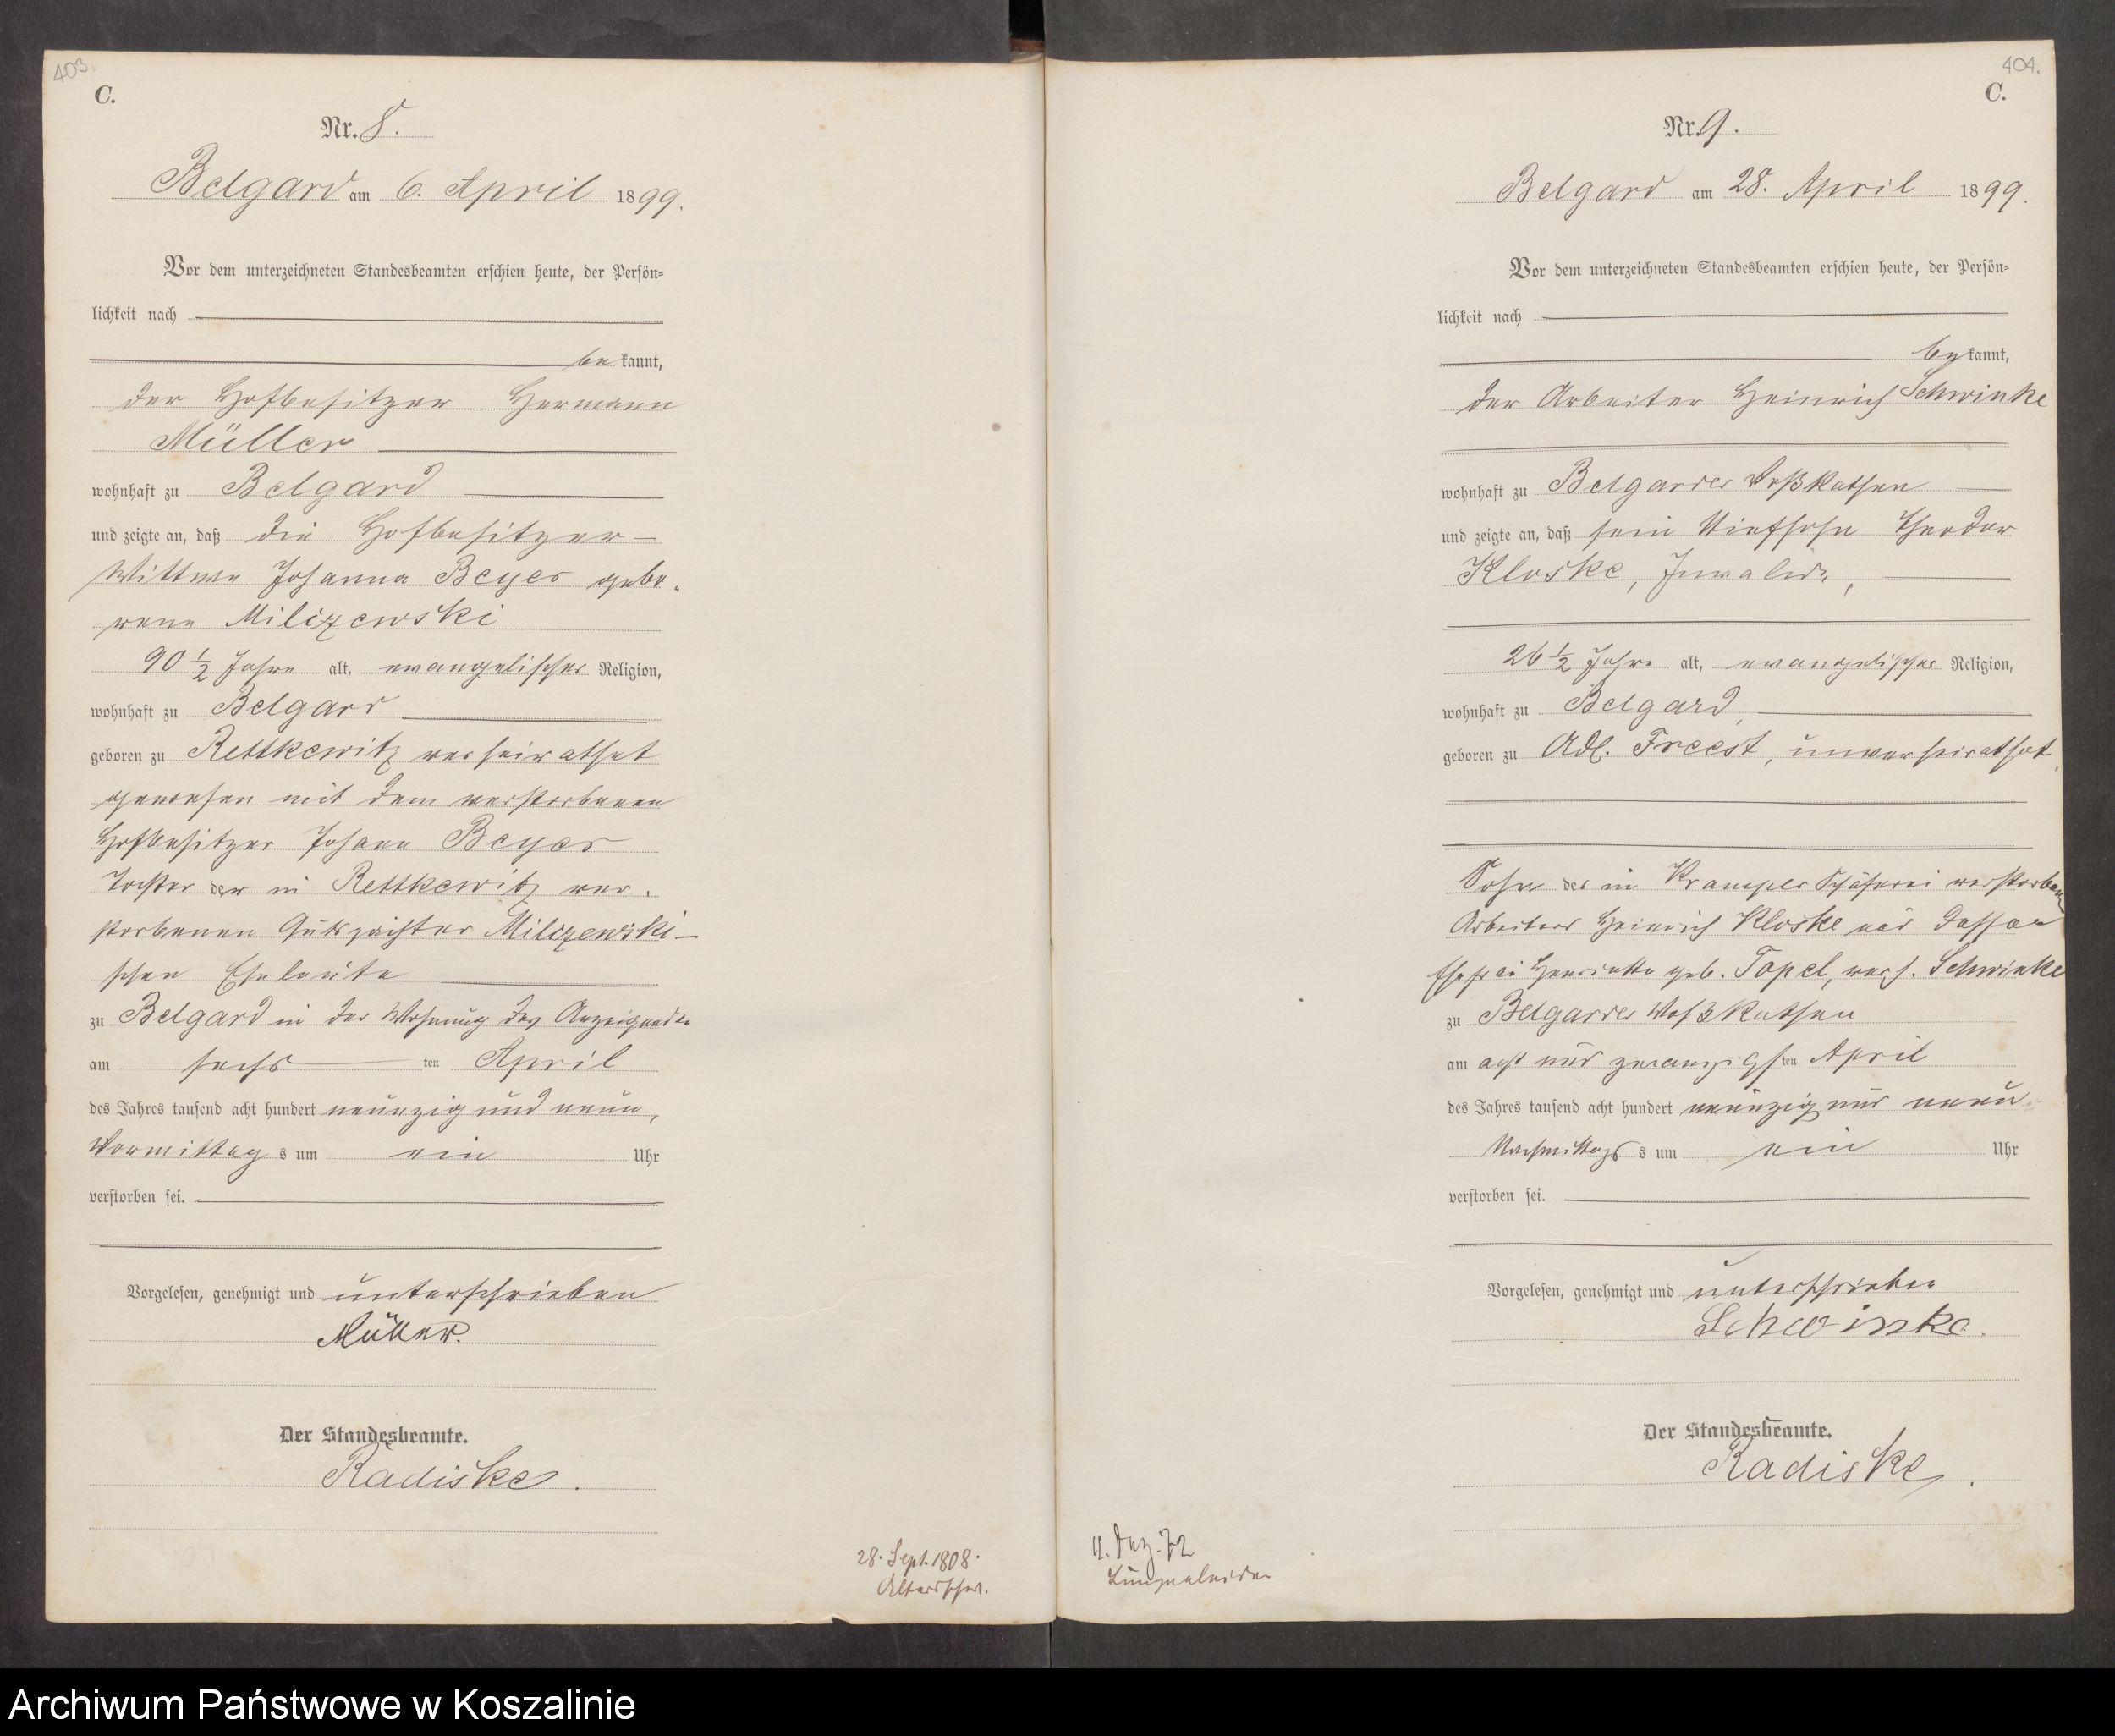 403.
C.
Nr. 8.
Belgard am 6. April 1899.
Vor dem unterzeichneten Standesbeamten erschien heute, der Persön-
lichkeit nach
be kannt,
der Hofbesitzer Hermann
Müller
wohnhaft zu Belgard
und zeigte an, daß die Hofbesitzer-
Wittwe Johanna Beyer gebo-
rene Milizewski
90 1/2 Jahre alt, evangelischer Religion,
wohnhaft zu Belgard
geboren zu Rettkewitz verheirathet
gewesen mit dem verstorbenen
Hofbesitzer Johann Beyer
Tochter der in Rettkewitz ver-
storbenen Gutspächter Milizewski-
schen Eheleute
zu Belgard in der Wohnung des Anzeigenden
am sechs ten April
des Jahres tausend acht hundert neunzig und neun,
Vormittag s um ein Uhr
verstorben sei.
Vorgelesen, genehmigt und unterschrieben
Müller.
Der Standesbeamte.
Radiske.
28. Sept. 1808.
Altersschw.
404.
C.
Nr. 9.
Belgard am 28. April 1899.
Vor dem unterzeichneten Standesbeamten erschien heute, der Persön-
lichkeit nach
be kannt,
der Arbeiter Heinrich Schwinke
wohnhaft zu Belgarder Voßkathen
und zeigte an, daß sein Stiefsohn Theodor
Kloske, Invalide,
26 1/2 Jahre alt, evangelischer Religion,
wohnhaft zu Belgard,
geboren zu Adl. Freest, unverheirathet,
Sohn des in Kramper Schäferei verstorben
Arbeiters Heinrich Kloske und dessen
Ehefrau Henriette geb. Topel, verh. Schwinke
zu Belgarder Voßkathen
am acht und zwanzigs ten April
des Jahres tausend acht hundert neunzig und neun
Nachmittags s um ein Uhr
verstorben sei.
Vorgelesen, genehmigt und unterschrieben
Schwinke.
Der Standesbeamte.
Radiske.
11. Dez. 72
Lungenleiden
Archiwum Państwowe w Koszalinie